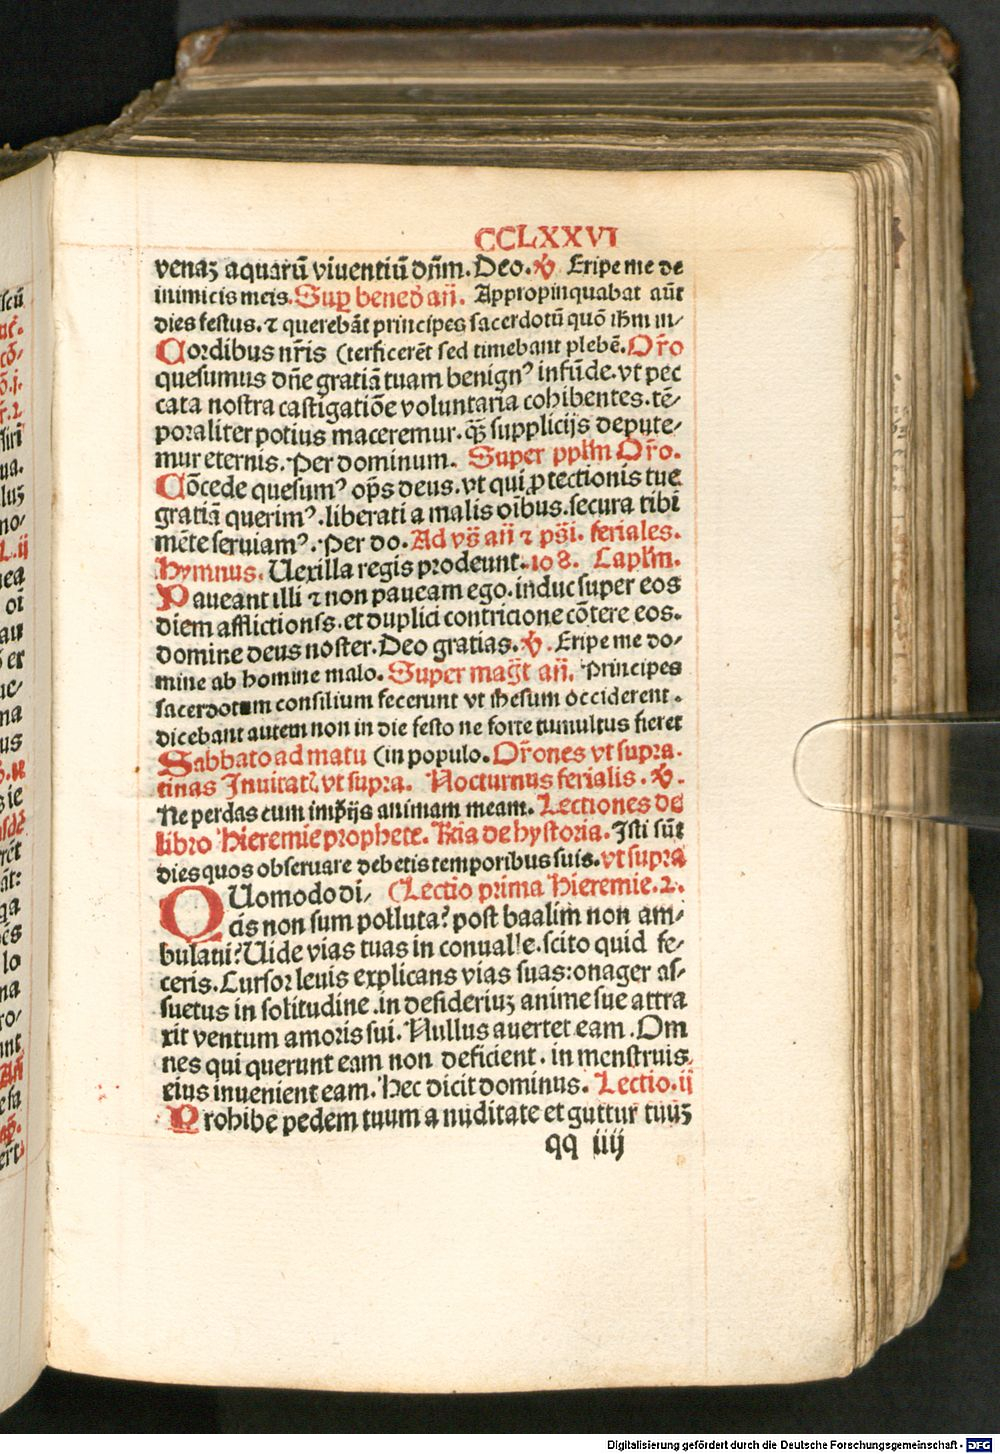 CCLXXVI
venaꝫ aquarū viuentiū dñm. Deo. ꝟ Eripe me de
inimicis meis. Suꝑ bened̄ añ. Appropinquabat aūt
dies festus. ⁊ querebāt principes sacerdotū quō ihm̄ in⸗
Cordibus nr̄is (terficerēt sed timebant plebē. Or̄o
quesumus dn̄e gratiā tuam benignꝰ infūde. vt pec
cata nostra castigatiōe voluntaria cohibentes. tē⸗
poraliter potius maceremur. qꝫ̄ supplicijs depute⸗
mur eternis. Per dominum. Super pplm̄ Or̄o.
Cōcede quesumꝰ op̄s deus. vt qui ꝓtectionis tue
gratiā querimꝰ. liberati a malis oībus. secura tibi
mēte seruiamꝰ. Per do. Ad vs̄ añ ⁊ ps̄i. feriales.
Hymnus. Uexilla regis prodeunt. 108. Caplm̄.
Paueant illi ⁊ non paueam ego. induc super eos
diem afflictionſs. et duplici contricione cōtere eos.
domine deus noster. Deo gratias. ꝟ. Eripe me do⸗
mine ab homine malo. Super maḡt añ. Principes
sacerdotum consilium fecerunt vt ihesum occiderent.
dicebant autem non in die festo ne forte tumultus fieret
Sabbato ad matu (in populo. Or̄ones vt supra.
tinas Inuitat̄ vt supra. Nocturnus ferialis. ꝟ.
Ne perdas cum imp̄ijs animam meam. Lectiones de
libro Hieremie prophete. Rn̄ia de hystoria. Isti sūt
dies quos obseruare debetis temporibus suis. vt supra
QUomodo di⸗ (Lectio prima Hieremie. 2.
cis non sum polluta? post baalim non am⸗
bulaui? Uide vias tuas in conualle. scito quid fe⸗
ceris. Cursor leuis explicans vias suas: onager as⸗
suetus in solitudine. in desideriuꝫ anime sue attra
xit ventum amoris sui. Nullus auertet eam. Om
nes qui querunt eam non deficient. in menstruis
eius inuenient eam. Hec dicit dominus. Lectio. ij
Prohibe pedem tuum a nuditate et guttur tuuꝫ
qq iiij
Digitalisierung gefördert durch die Deutsche Forschungsgemeinschaft - DFG